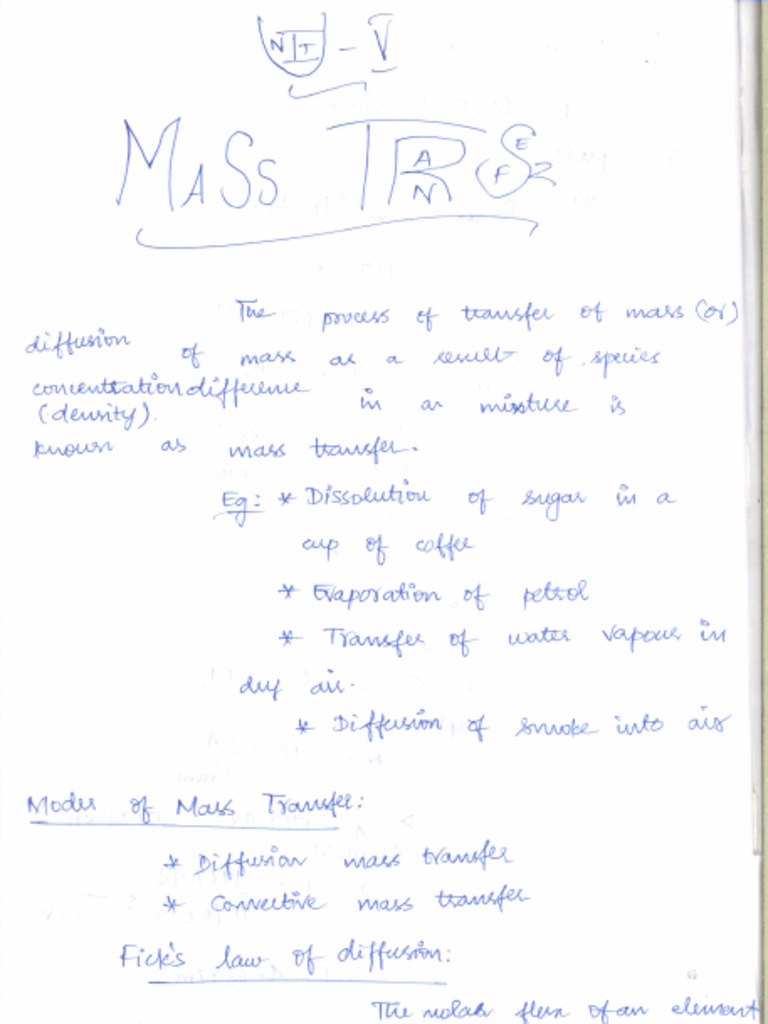 UNIT - V
MASS TRANSFER
The process of transfer of mass (or)
diffusion of mass as a result of species
concentration difference in a mixture is
(density).
known as mass transfer.
Eg: * Dissolution of sugar in a
cup of coffee
* Evaporation of petrol
* Transfer of water vapour in
dry air.
* Diffusion of smoke into air
Modes of Mass Transfer:
* Diffusion mass transfer
* Convective mass transfer
Fick's law of diffusion:
The molar flux of an element